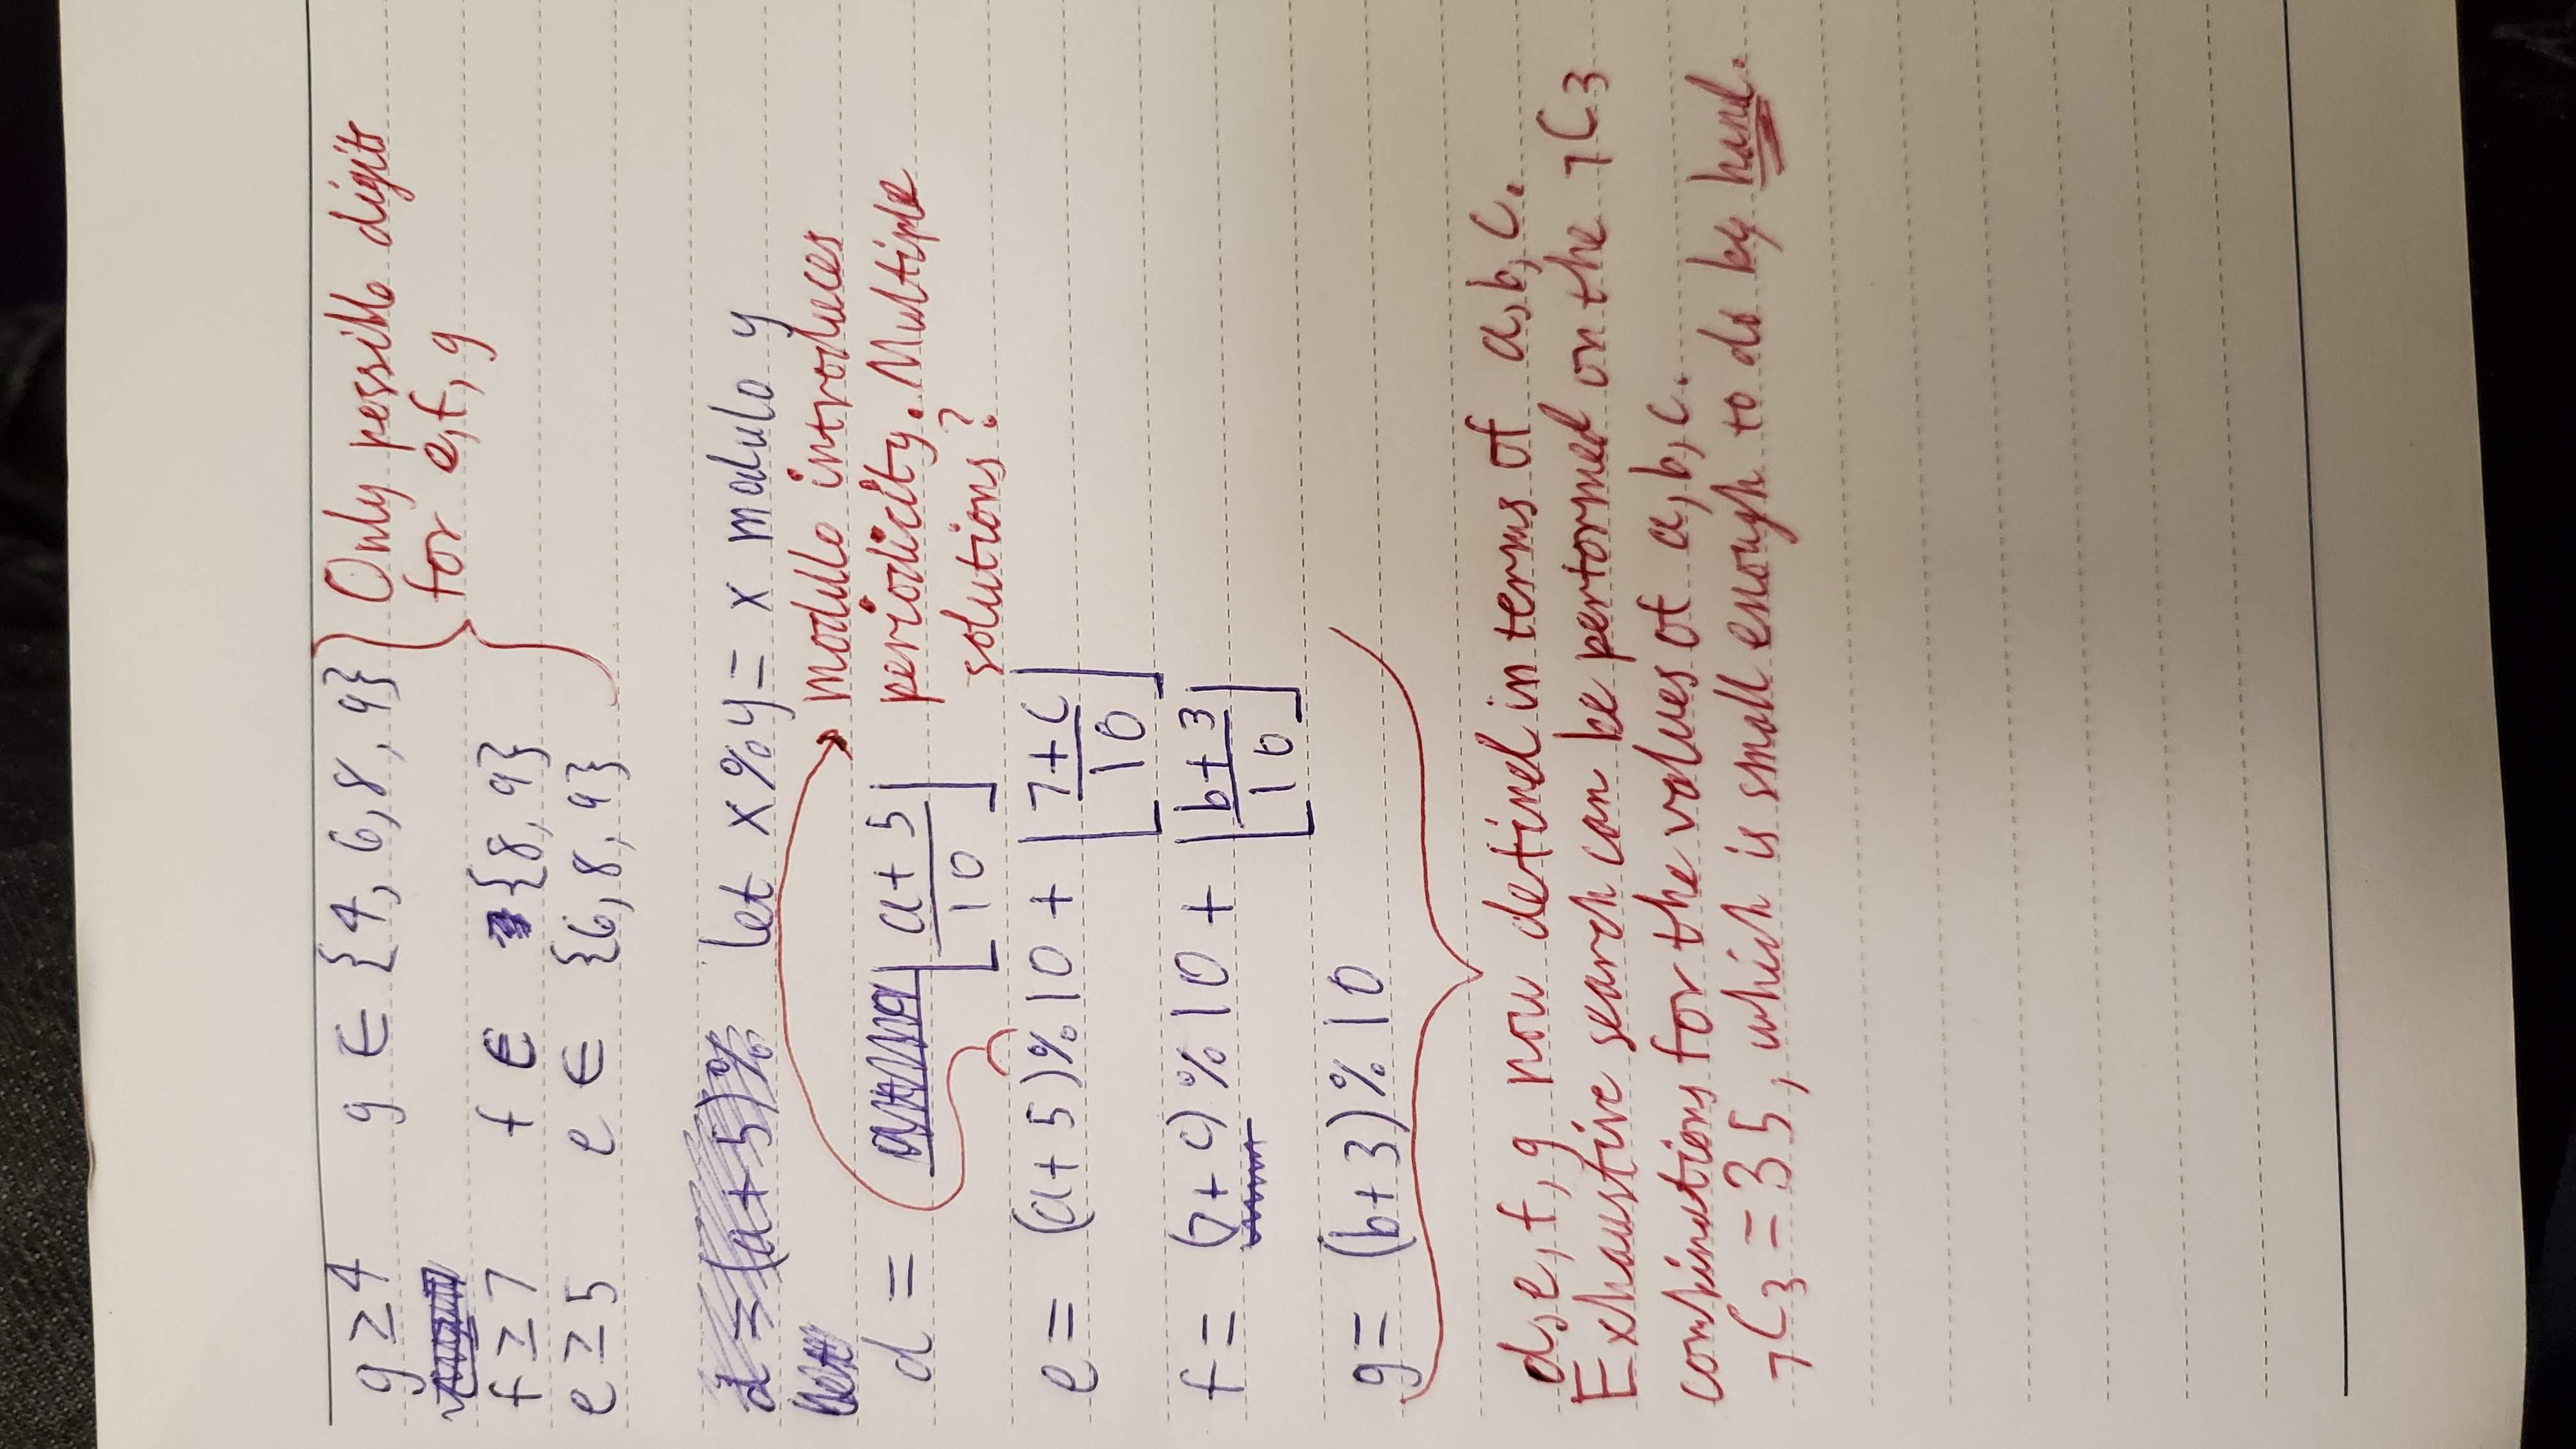 g ≥ 4 g ∈ {4, 6, 8, 9} Only possible digits
for e, f, g
f ≥ 7 f ∈ {8, 9}
e ≥ 5 e ∈ {6, 8, 9}
d = (a + 5)% let x % y = x modulo y
modullo introduces
d = ⌊(a + 5)/10⌋ periodicity. Multiple
solutions?
e = (a + 5) % 10 + ⌊(7 + c)/10⌋
f = (7 + c) % 10 + ⌊(b + 3)/10⌋
g = (b + 3) % 10
d, e, f, g now defined in terms of a, b, c.
Exhaustive search can be performed on the ₇C₃
combinations for the values of a, b, c.
₇C₃ = 35, which is small enough to do by hand.